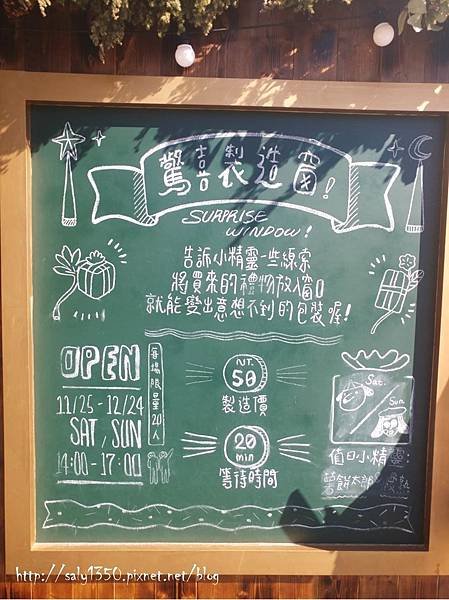 驚喜製造窗!
SURPRISE
WINDOW!
告訴小精靈一些線索
將買來的禮物放入窗口
就能變出意想不到的包裝喔!
OPEN
11/25 - 12/24
SAT, SUN
14:00 - 17:00
每場限量20人
NT.
50
製造價
20
min
等待時間
Sat.
Sun.
值日小精靈:
薯餅太郎
http://saly1350.pixnet.net/blog